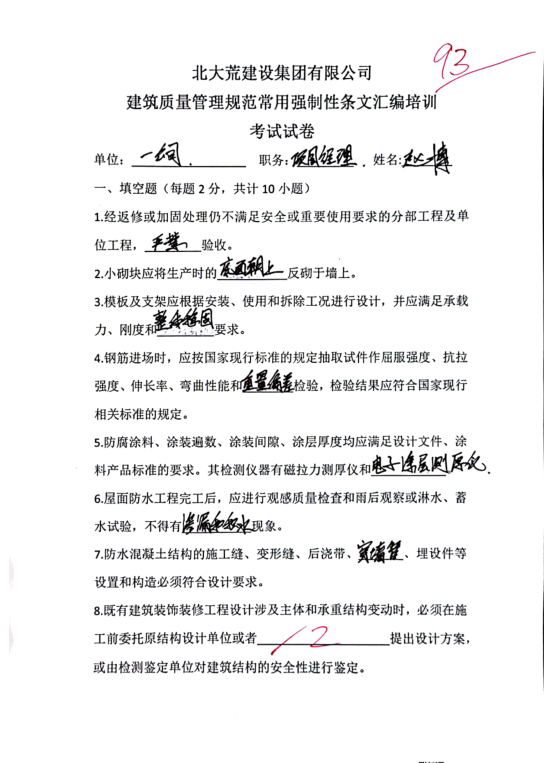 93
北大荒建设集团有限公司
建筑质量管理规范常用强制性条文汇编培训
考试试卷
单位：一公司. 职务:项目经理. 姓名:赵一博
一、填空题（每题 2 分，共计 10 小题）
1.经返修或加固处理仍不满足安全或重要使用要求的分部工程及单
位工程，严禁验收。
2.小砌块应将生产时的底面朝上反砌于墙上。
3.模板及支架应根据安装、使用和拆除工况进行设计，并应满足承载
力、刚度和整体稳固要求。
4.钢筋进场时，应按国家现行标准的规定抽取试件作屈服强度、抗拉
强度、伸长率、弯曲性能和重量偏差检验，检验结果应符合国家现行
相关标准的规定。
5.防腐涂料、涂装遍数、涂装间隙、涂层厚度均应满足设计文件、涂
料产品标准的要求。其检测仪器有磁拉力测厚仪和电子涂层测厚仪.
6.屋面防水工程完工后，应进行观感质量检查和雨后观察或淋水、蓄
水试验，不得有渗漏和积水现象。
7.防水混凝土结构的施工缝、变形缝、后浇带、穿墙管、埋设件等
设置和构造必须符合设计要求。
8.既有建筑装饰装修工程设计涉及主体和承重结构变动时，必须在施
工前委托原结构设计单位或者 提出设计方案，
或由检测鉴定单位对建筑结构的安全性进行鉴定。